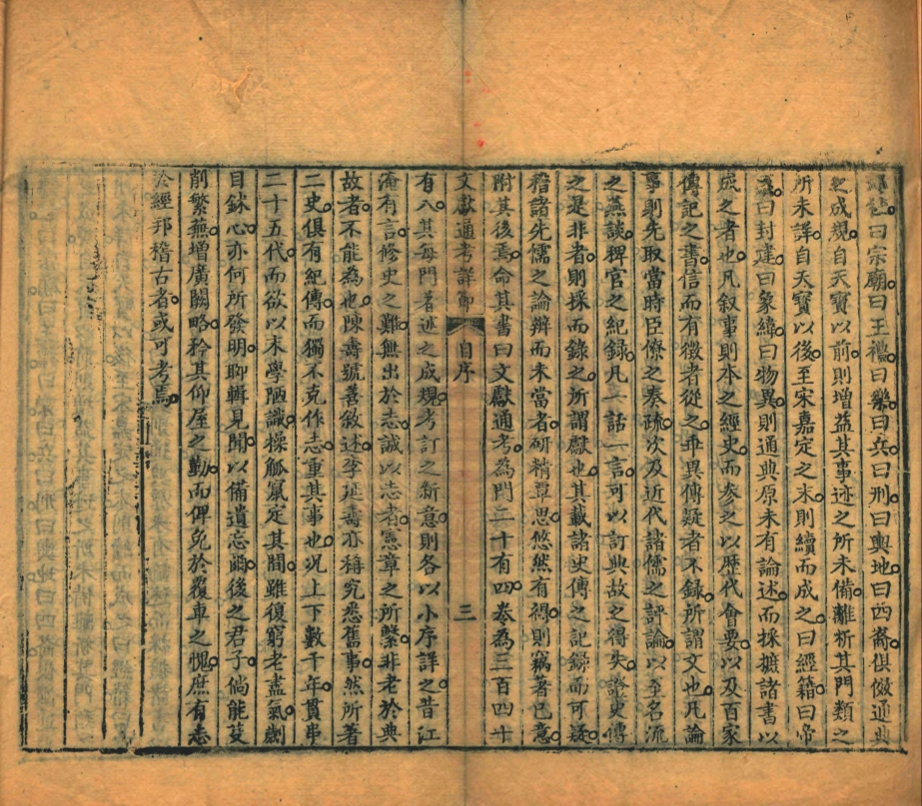 曰宗廟曰王禮曰樂曰兵曰刑曰輿地曰四裔俱倣通典
之成規自天寶以前則增益其事迹之所未備離析其門類之
所未詳自天寶以後至宋嘉定之末則續而成之曰經籍曰帝
系曰封建曰象緯曰物異則通典原未有論述而採摭諸書以
成之者也凡叙事則本之經史而参之以歷代會要以及百家
傳記之書信而有徵者從之乖異傳疑者不錄所謂文也凡論
事則先取當時臣僚之奏疏次及近代諸儒之評論以至名流
之燕談稗官之紀錄凡一話一言可以訂典故之得失證史傳
之是非者則採而錄之所謂獻也其載諸史傳之記錄而可疑
稽諸先儒之論辯而未當者研精覃思悠然有得則竊著已意
附其後焉命其書曰文獻通考為門二十有四卷為三百四十
文獻通考詳節 自序 三
有八其每門著述之成規考訂之新意則各以小序詳之昔江
淹有言修史之難無出於志誠以志者憲章之所繫非老於典
故者不能為也陳壽號善敘述李延壽亦稱究悉舊事然所著
二史俱有紀傳而獨不克作志重其事也况上下數千年貫串
二十五代而欲以末學陋識操觚竄定其間雖復窮老盡氣劌
目鉥心亦何所發明聊輯見聞以備遺忘爾後之君子倘能芟
削繁蕪增廣闕略矜其仰屋之勤而俾免於覆車之愧庶有志
於經邦稽古者或可考焉